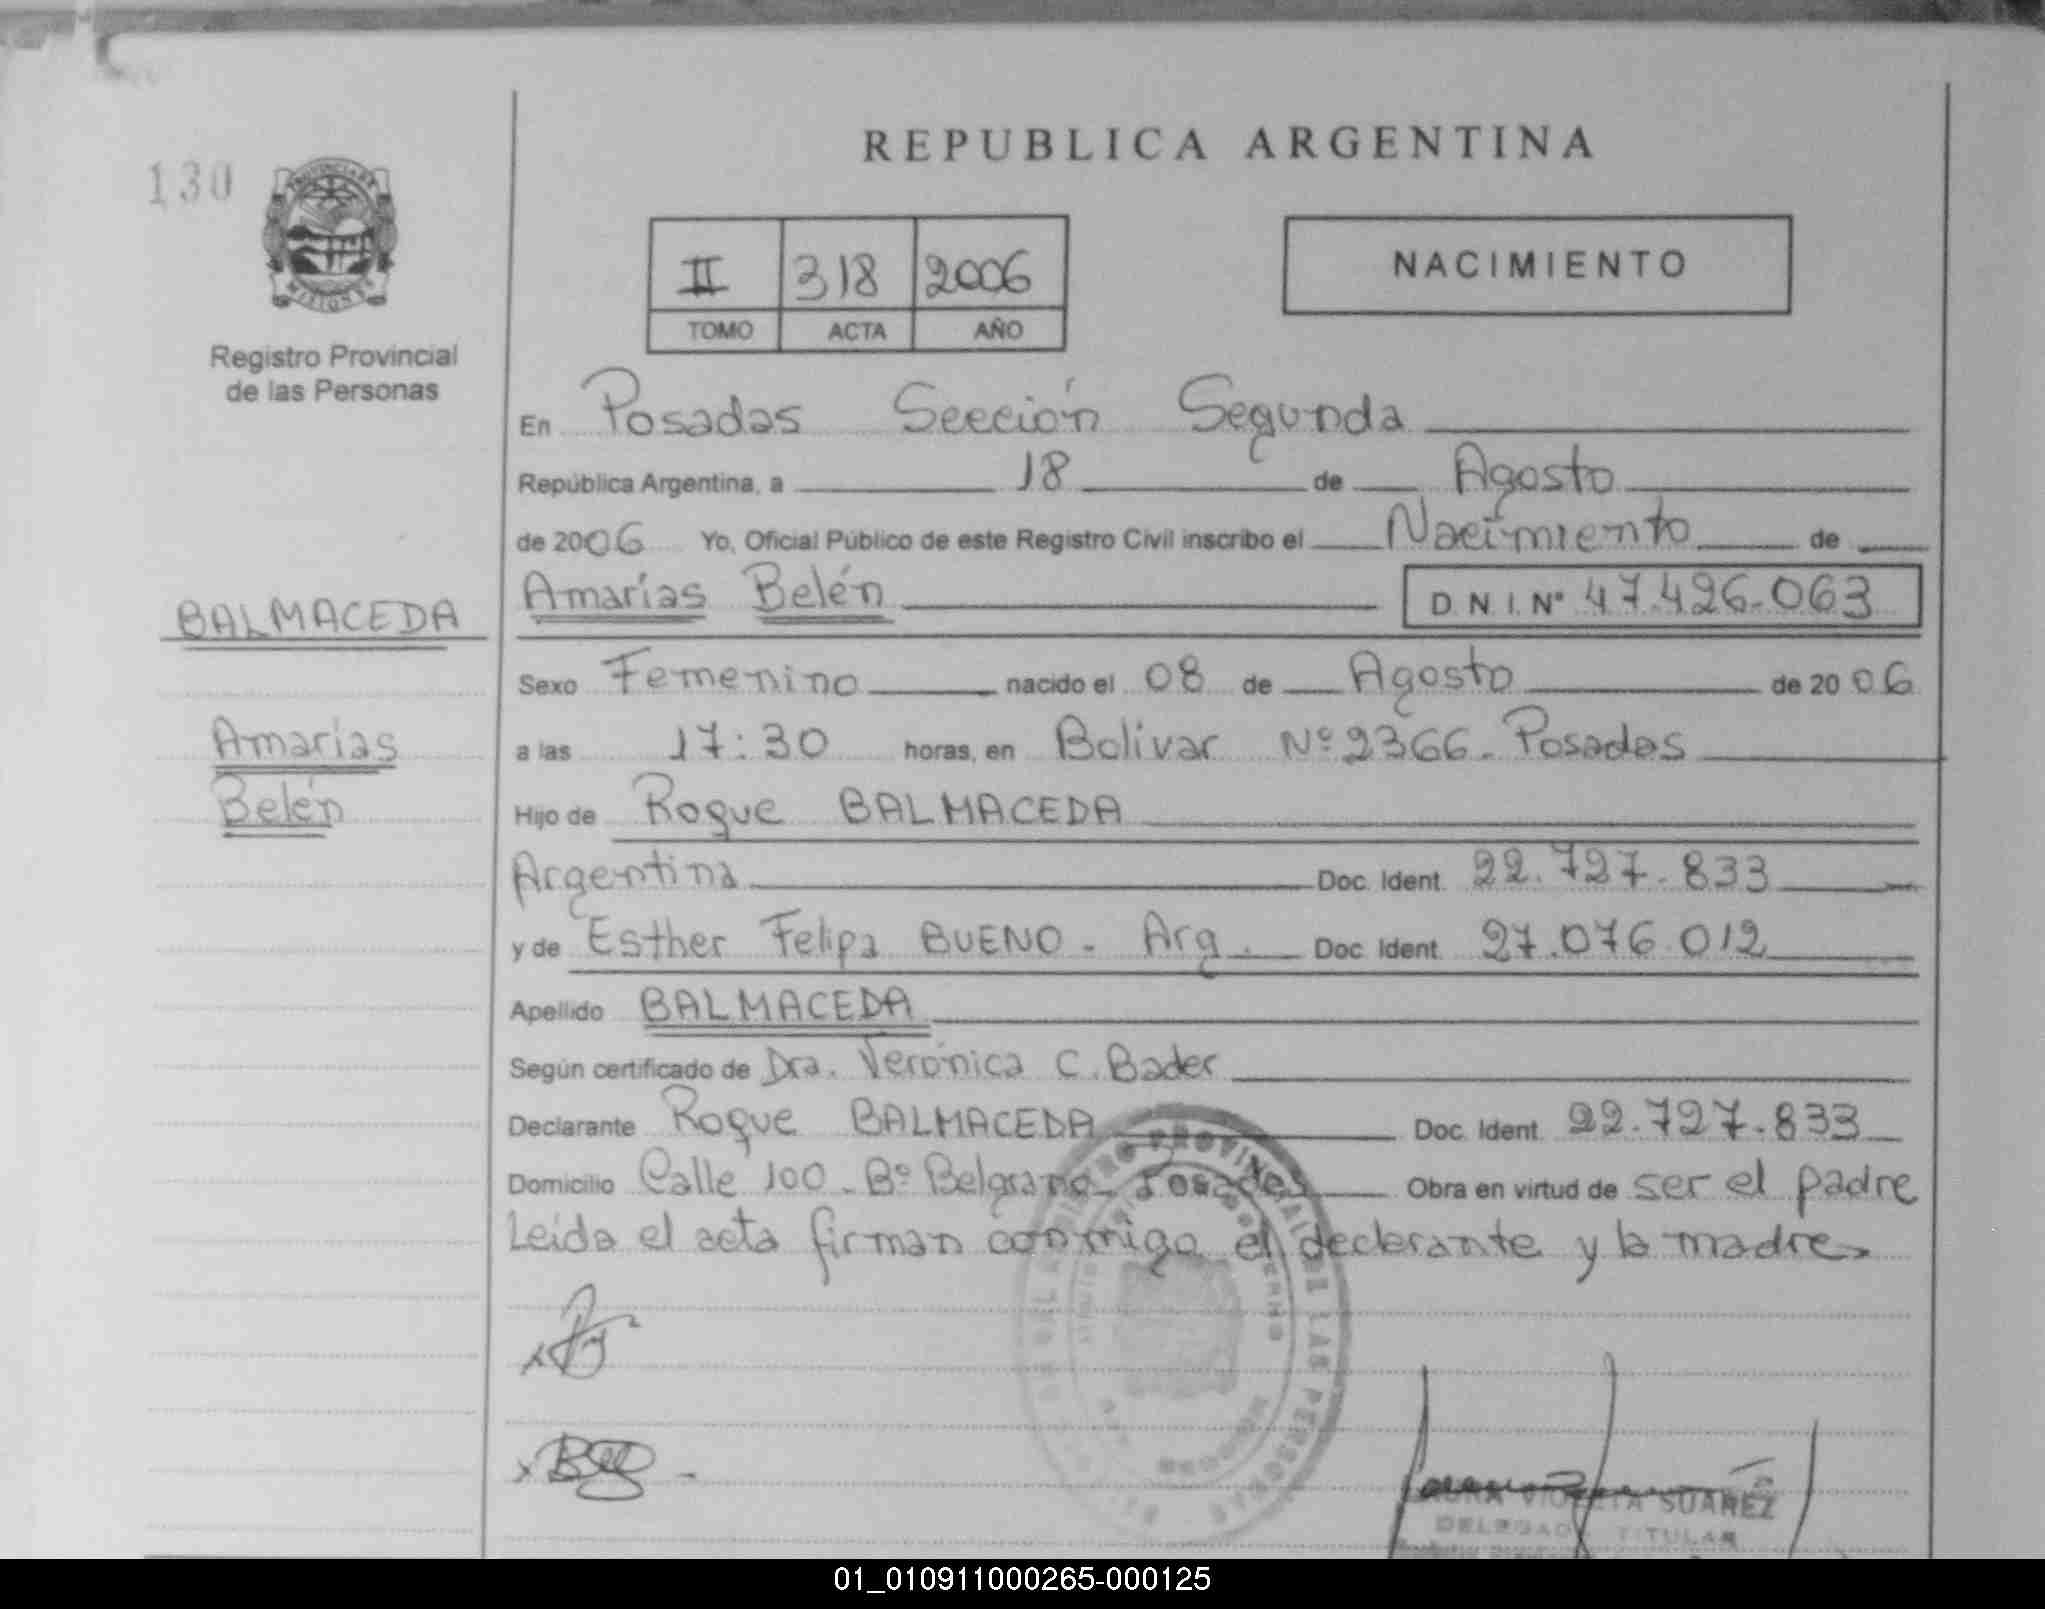 REPUBLICA ARGENTINA
130
PROVINCIA DE
MISIONES
Registro Provincial
de las Personas
II 318 2006
TOMO ACTA AÑO
NACIMIENTO
En Posadas Sección Segunda
República Argentina, a 18 de Agosto
de 2006 Yo, Oficial Público de este Registro Civil inscribo el Nacimiento de
Amarías Belén D.N.I. Nº 47.426.063
BALMACEDA
Sexo Femenino nacido el 08 de Agosto de 2006
Amarías
a las 17:30 horas, en Bolivar Nº 2366. Posadas
Belén
Hijo de Roque BALMACEDA
Argentina Doc. Ident. 22.727.833
y de Esther Felipa BUENO - Arg. Doc. Ident. 27.076.012
Apellido BALMACEDA
Según certificado de Dra. Verónica C. Bader
Declarante Roque BALMACEDA Doc. Ident. 22.727.833
Domicilio Calle 100 - Bº Belgrano - Posadas Obra en virtud de ser el padre
Leída el acta firman conmigo el declarante y la madre
PROVINCIAL DE LAS PERSONAS
MISIONES
LAURA VIOLETA SUAREZ
DELEGADA TITULAR
01_010911000265-000125